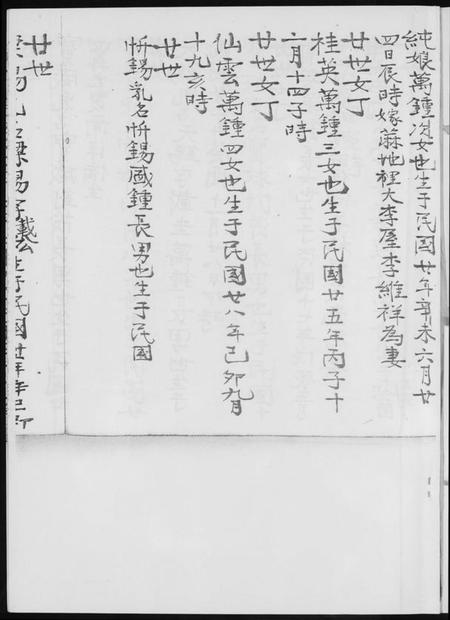 純娘萬鍾次女也生于民國廿年辛未六月廿
四日辰時嫁蔴地裡大李屋李維祥為妻
廿世女丁
桂英萬鍾三女也生于民國廿五年丙子十
二月十四子時
廿世女丁
仙雲萬鍾四女也生于民國廿八年己卯九月
十九亥時
廿世
忻錫乳名忻錫國鍾長男也生于民國
廿世